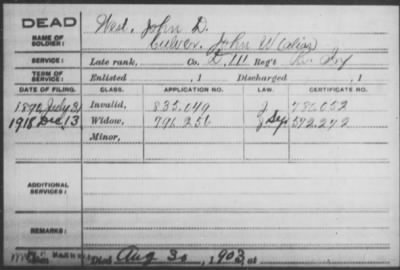 DEAD
NAME OF SOLDIER: West, John D.
Culver, John W (alias)
SERVICE: Late rank, Co. D, 111 Reg't Inf
TERM OF SERVICE: Enlisted , 1 Discharged , 1
DATE OF FILING. CLASS. APPLICATION NO. LAW. CERTIFICATE NO.
1890 July 3 Invalid, 835.049 J 786.052
1918 Dec 13 Widow, 796 256 J Sep 572.272
Minor,
ADDITIONAL SERVICES:
REMARKS:
Died Aug 30, 1903, at